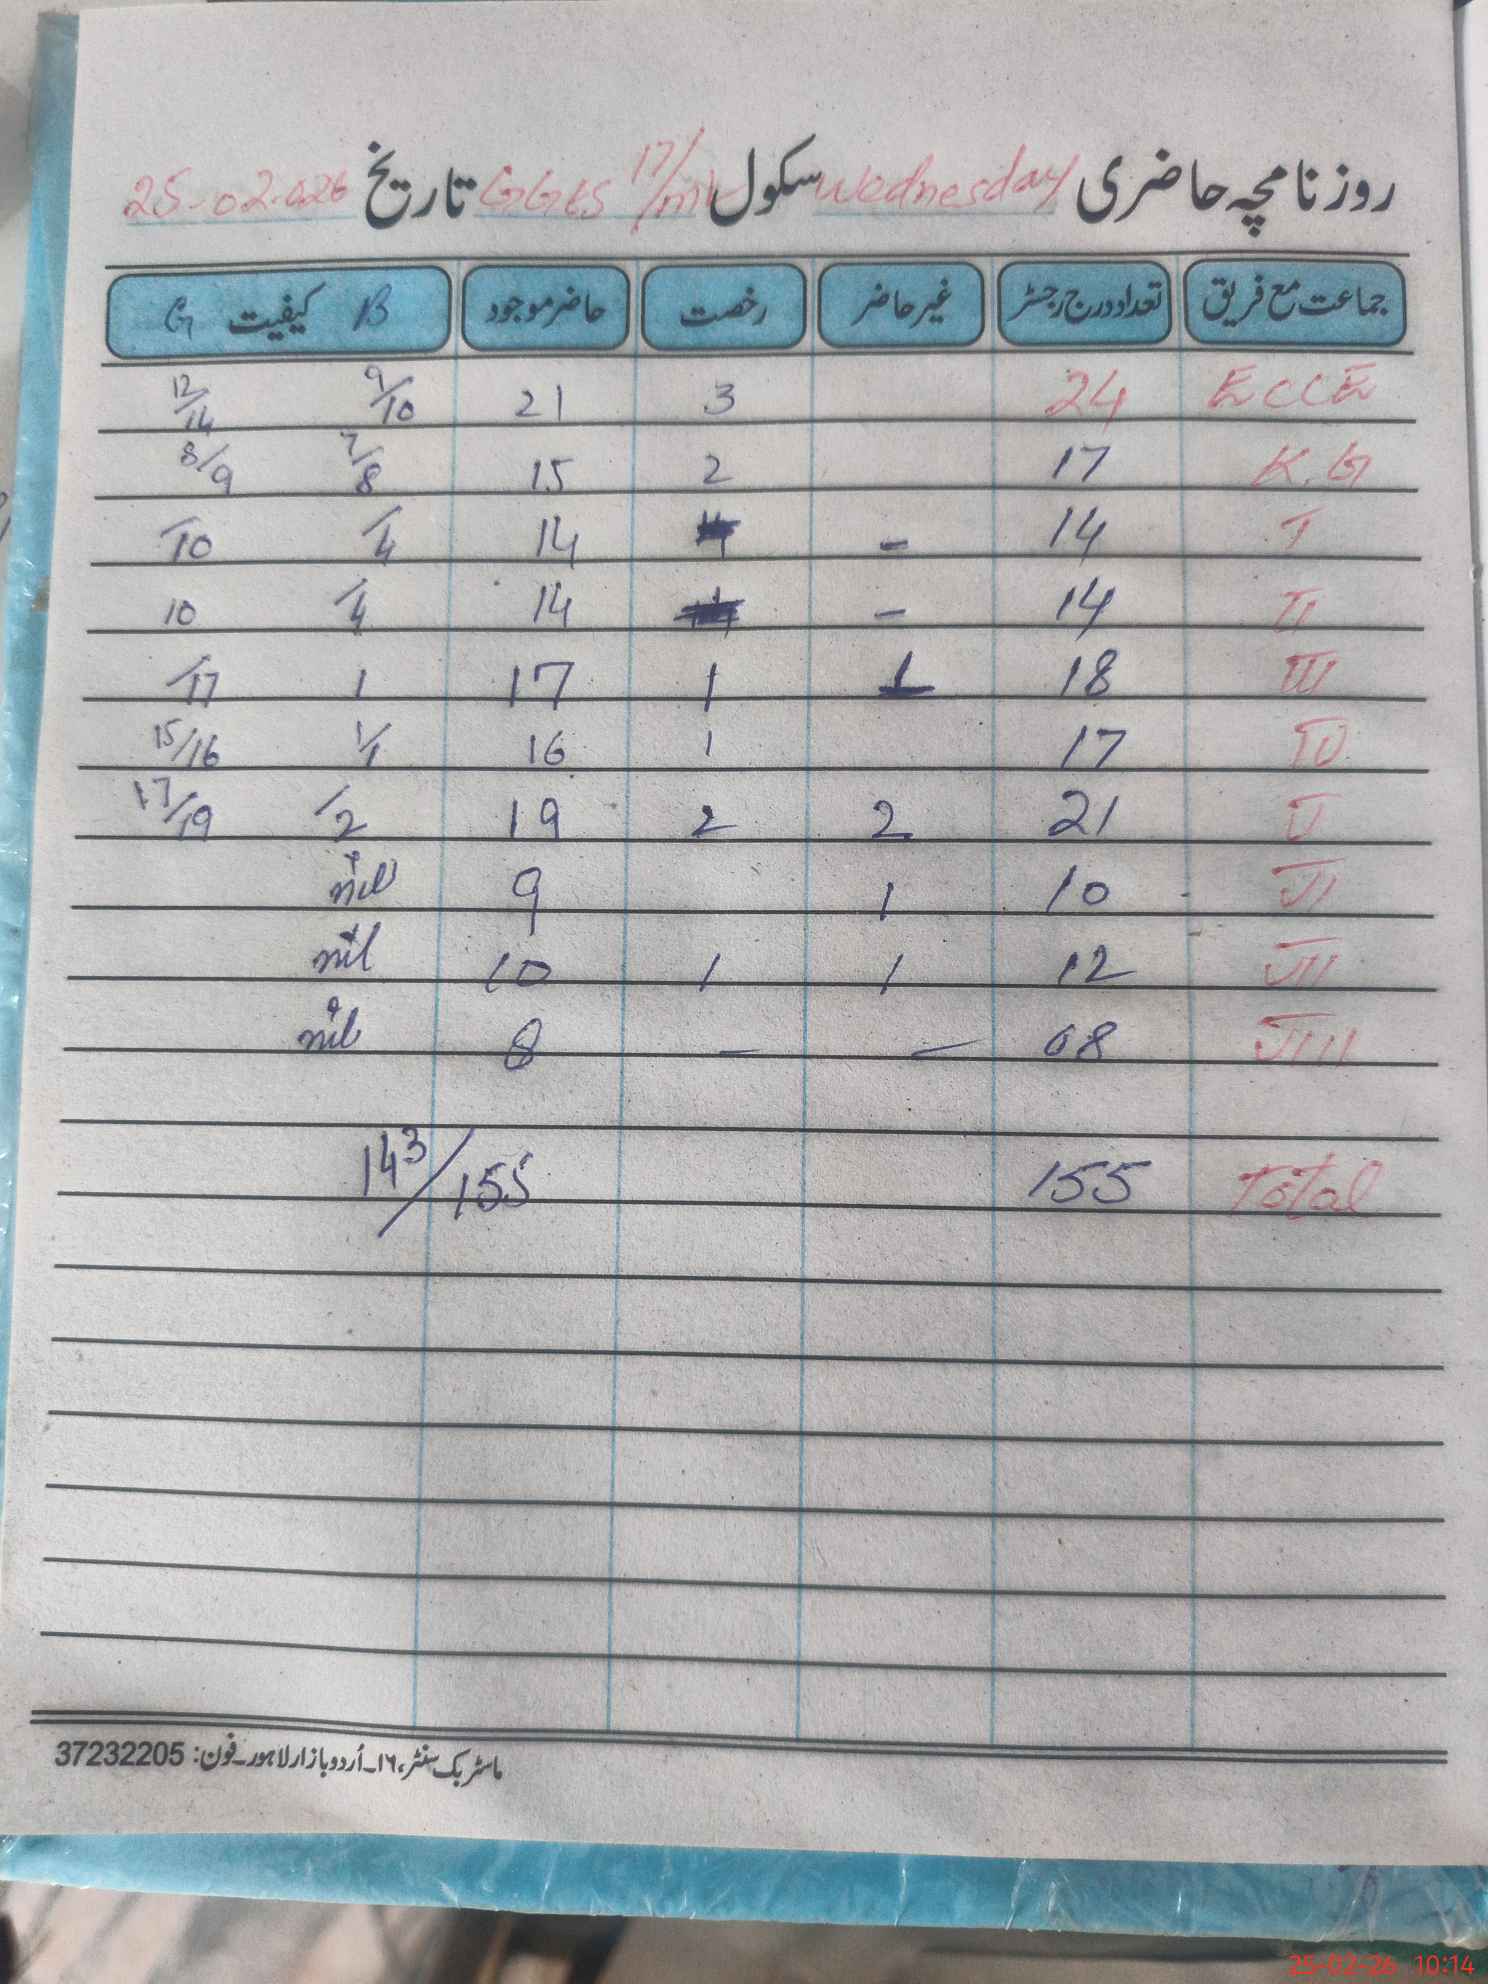 روزنامچہ حاضری Wednesday سکول GGES 17/ تاریخ 25-02-026
جماعت مع فریق تعداد درج رجسٹر غیر حاضر رخصت حاضر موجود B کیفیت G
ECCE 24 3 21 9/10 12/14
K.G 17 2 15 7/8 8/9
I 14 - 14 /4 /10
II 14 - 14 /4 10
III 18 1 1 17 1 /17
IV 17 1 16 1/1 15/16
V 21 2 2 19 /2 17/19
VI 10 1 9 nil
VII 12 1 1 10 nil
VIII 08 - - 8 nil
Total 155 143/155
ماسٹر بک سنٹر، ۱۶۔اُردو بازار لاہور۔فون: 37232205
25-02-26 10:14